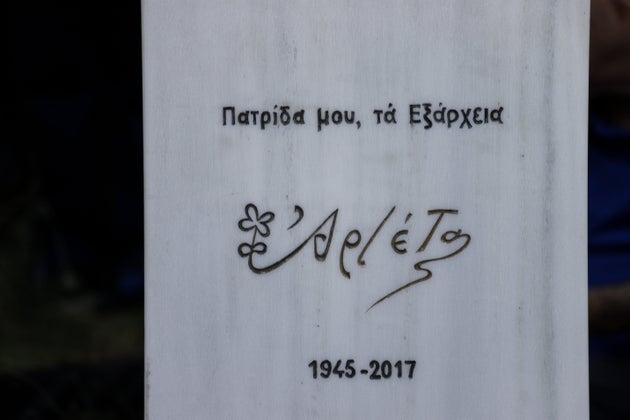 Πατρίδα μου, τά Εξάρχεια
Ἀρλέτα
1945-2017